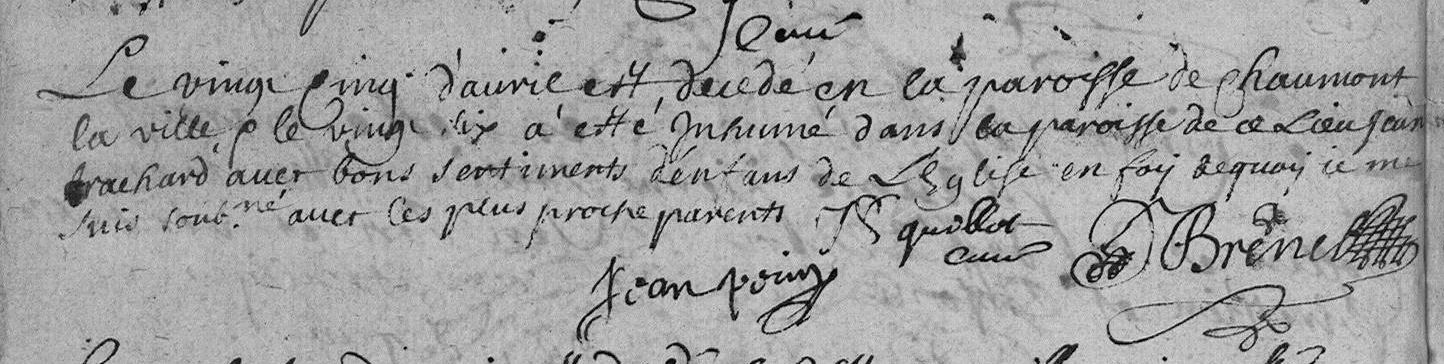 Le vingt cinq d'auril est decedé en la paroisse de Chaumont
la ville & le vingt six a esté Inhumé dans la paroisse de ce Lieu Jean
brachard auec bons sentiments d'enfans de L'Eglise en foy dequoy ie me
suis soub.né auec les plus proche parents quillot D Brenel
curé
Jean poing